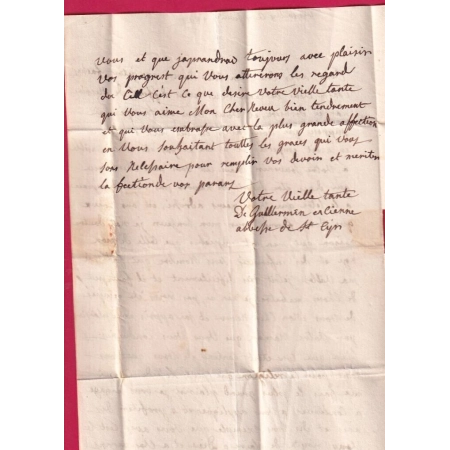 vous et que japrandrai toujours avec plaisir
vos progrest qui vous attirerons les regard
du Ciel C'est Ce que desire votre vielle tante
qui vous aime Mon Cher Neveu bien tendrement
et que vous embrasse avec la plus grande affection
en Vous souhaitant touttes les graces qui vous
sons Nesesaire pour remplir vos devoirs et meriter
la fection de vos parans
Votre Vielle tante
De Guillermin encienne
abbesse de St Cyr